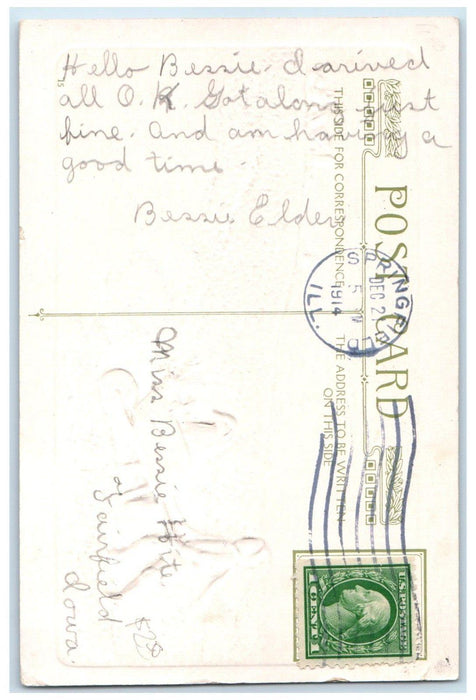 Hello Bessie. I arived
all O.K. Got along just
fine. and am having a
good time.
Bessie Elder
POST CARD
THIS SIDE FOR CORRESPONDENCE
THE ADDRESS TO BE WRITTEN
ON THIS SIDE
SPRINGFIELD
DEC 2
5
1914
ILL.
Miss Bessie Hite
Fairfield
Iowa.
U.S. POSTAGE
1 CENT 1